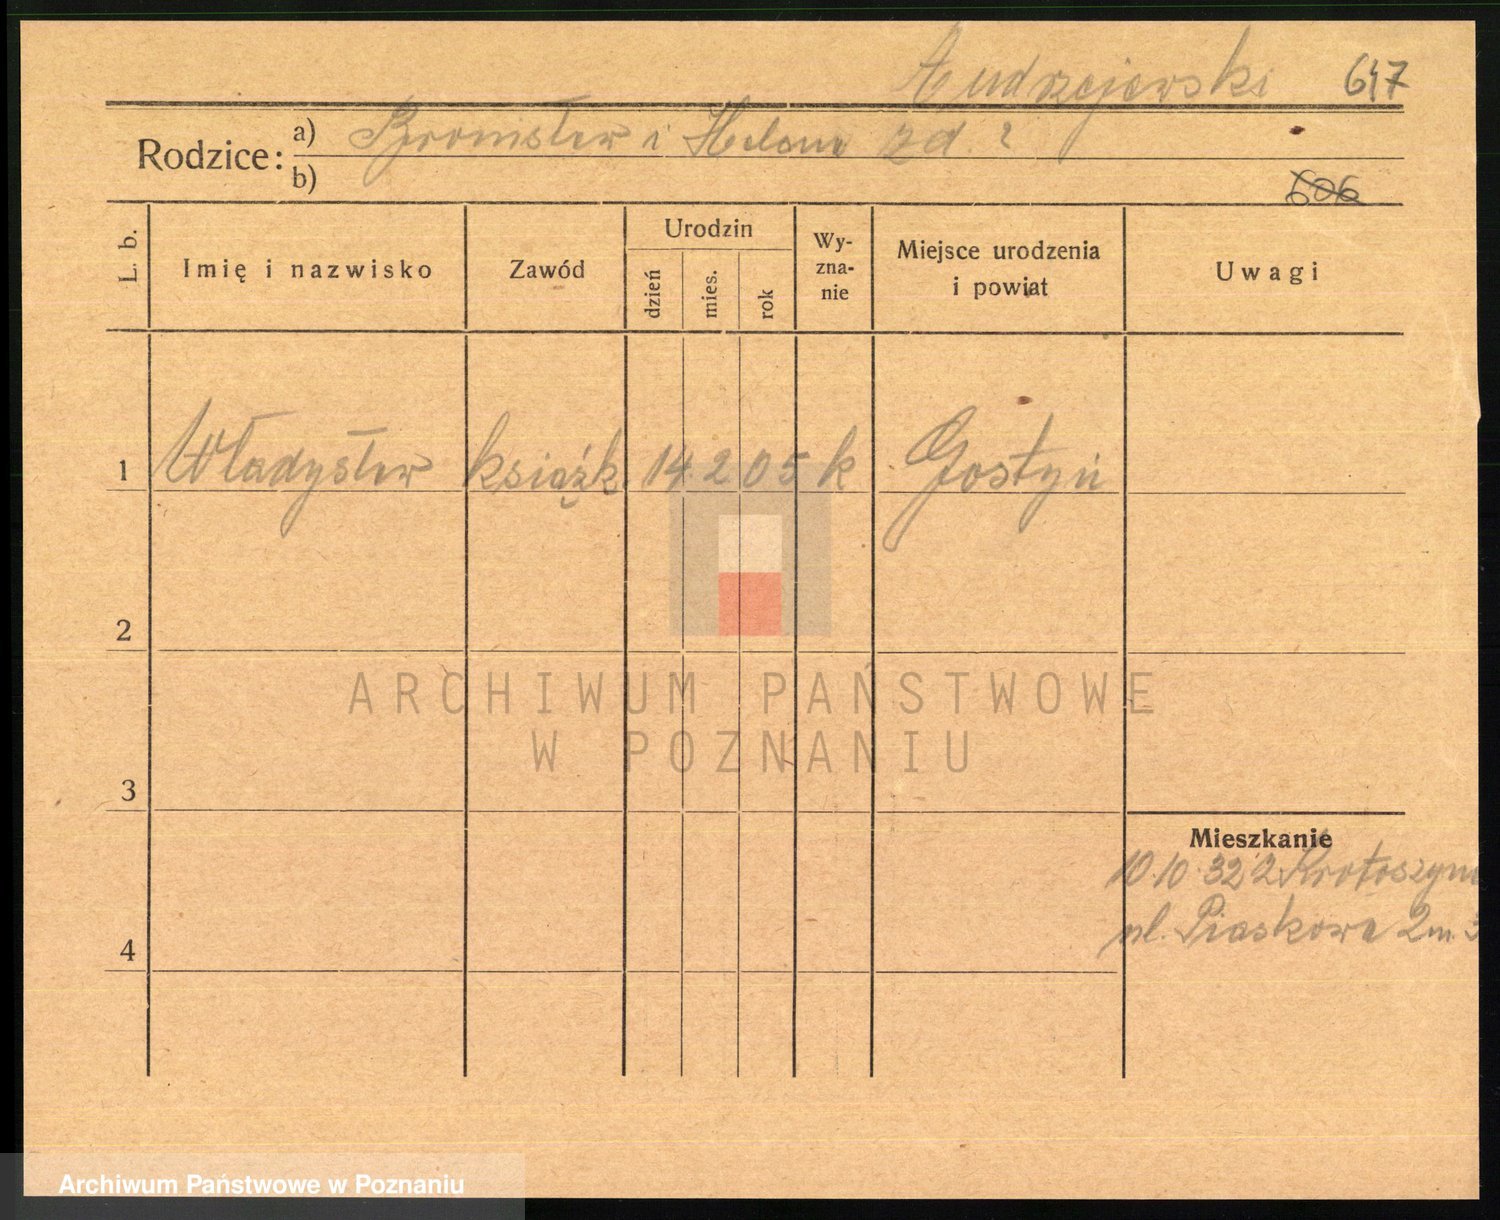 Andrzejewski 647
Rodzice: a) Bronisław i Helena zd. ?
b)
606
L. b.
Imię i nazwisko
Zawód
Urodzin
dzień
mies.
rok
Wy-
zna-
nie
Miejsce urodzenia
i powiat
Uwagi
1 Władysław książk. 14 2 05 k Gostyń
2
ARCHIWUM PAŃSTWOWE
W POZNANIU
3
Mieszkanie
10.10.32 z Krotoszyna
ul. Piaskowa 2 m. 3
4
Archiwum Państwowe w Poznaniu